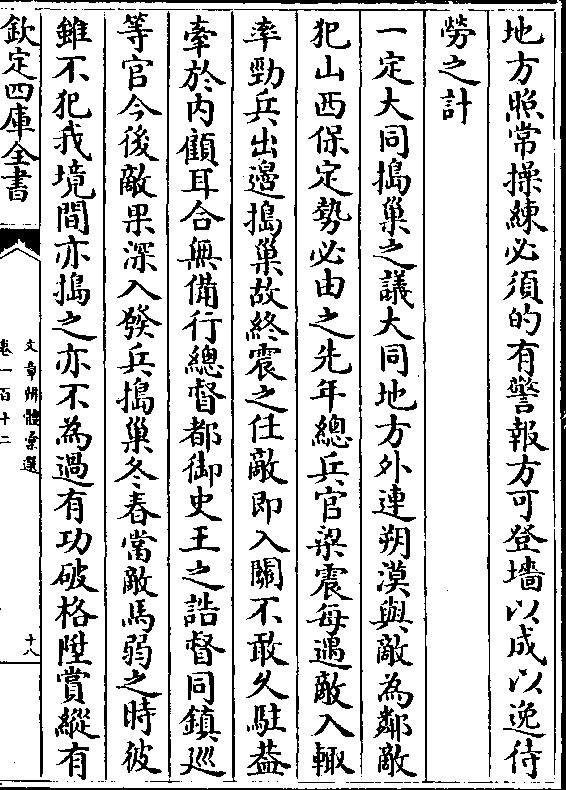 地方照常操練必須的有警報方可登墻以成以逸待
勞之計
一定大同搗巢之議大同地方外連朔漠與敵為鄰敵
犯山西保定勢必由之先年總兵官梁震每遇敵入輙
率勁兵出邊搗巢故終震之任敵即入關不敢久駐葢
牽於内顧耳合無備行總督都御史王之誥督同鎮廵
等官今後敵果深入發兵搗巢冬春當敵馬弱之時彼
雖不犯我境間亦搗之亦不為過有功破格陞賞縱有
欽定四庫全書
文章辨體彚選
卷一百十二
十八